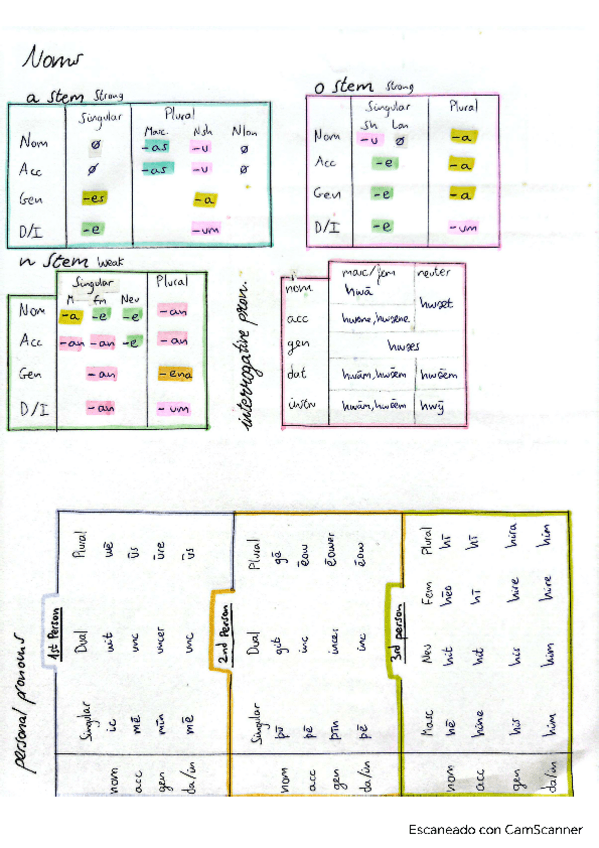 Noms
a stem Strong
Singular Plural
Masc. Nsh Nlon
Nom ø -as -u ø
Acc ø -as -u ø
Gen -es -a
D/I -e -um
o stem Strong
Singular Plural
Sh Lon
Nom -u ø -a
Acc -e -a
Gen -e -a
D/I -e -um
n stem weak
Singular Plural
M fm Neu
Nom -a -e -e -an
Acc -an -an -e -an
Gen -an -ena
D/I -an -um
interrogative pron.
masc/fem neuter
nom hwā hwæt
acc hwone, hwæne
gen hwæs
dat hwām, hwǣm hwǣm
instr hwām, hwǣm hwȳ
personal pronouns
1st Person
Singular Dual Plural
nom ic wit wē
acc mē unc ūs
gen mīn uncer ūre
da/in mē unc ūs
2nd Person
Singular Dual Plural
nom þū git gē
acc þē inc ēow
gen þīn incer ēower
da/in þē inc ēow
3rd person
Masc Neu Fem Plural
nom hē hit hēo hī
acc hine hit hī hī
gen his his hire hira
da/in him him hire him
Escaneado con CamScanner